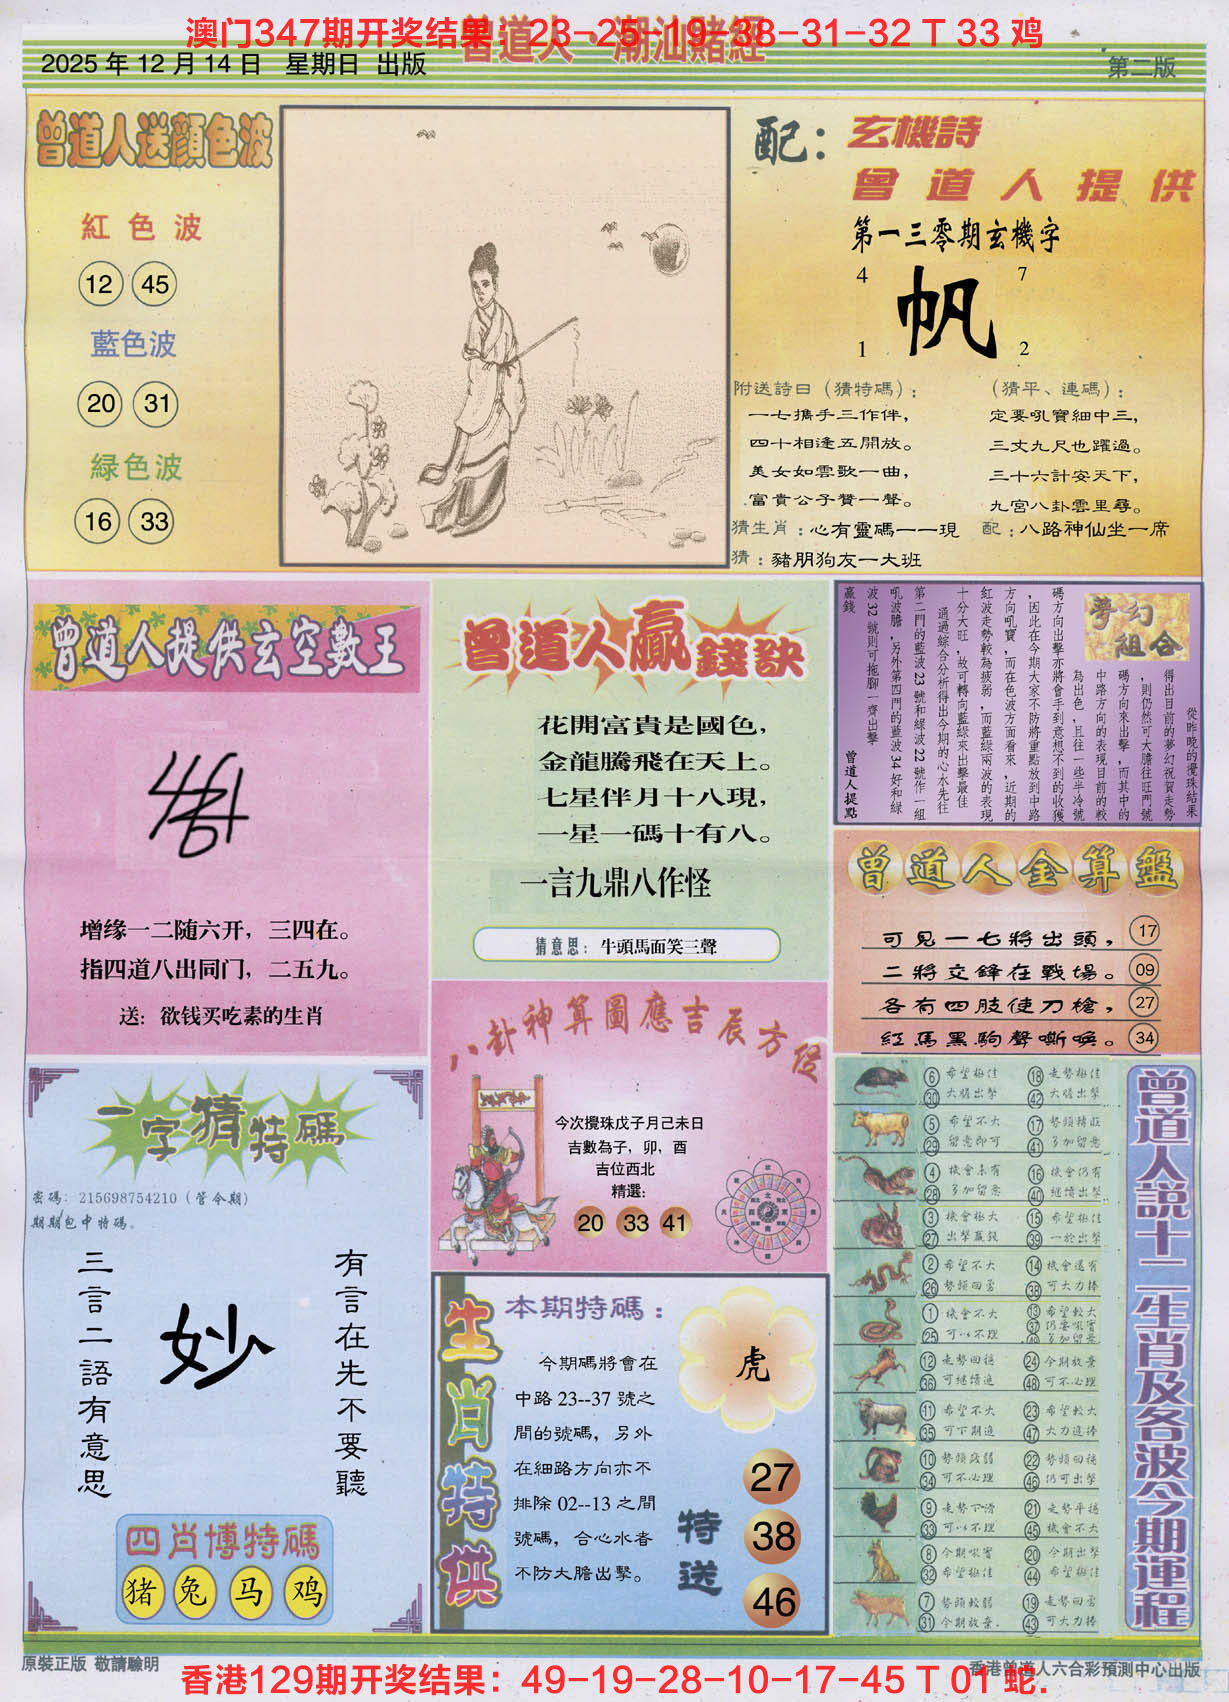 澳门347期开奖结果：23-25-19-38-31-32 T 33 鸡
曾道人·潮汕賭經
2025 年 12 月 14 日 星期日 出版
第二版
曾道人送顏色波
紅色波
12 45
藍色波
20 31
緑色波
16 33
配：
玄機詩
曾道人提供
第一三零期玄機字
4 7
帆
1 2
附送詩曰（猜特碼）：
一七攜手三作伴，
四十相逢五開放。
美女如雲歌一曲，
富貴公子贊一聲。
（猜平、連碼）：
定要吼實細中三，
三丈九尺也躍過。
三十六計安天下，
九宮八卦雲里尋。
猜生肖：心有靈碼一一現
配：八路神仙坐一席
猜：豬朋狗友一大班
曾道人提供玄空數王
增缘一二随六开，三四在。
指四道八出同门，二五九。
送：欲钱买吃素的生肖
曾道人贏錢訣
花開富貴是國色，
金龍騰飛在天上。
七星伴月十八現，
一星一碼十有八。
一言九鼎八作怪
猜意思：牛頭馬面笑三聲
夢幻組合
從昨晚的攪珠結果
得出目前的夢幻祝賀走勢
，則仍然可大膽往旺門號
碼方向來出擊，而其中的
中路方向的表現目前的較
為出色，且往一些半冷號
碼方向出擊亦將會手到意想不到的收獲
，因此在今期大家不防將重點放到中路
方向吼寶，而在色波方面看來，近期的
紅波走勢較為疲弱，而藍綠兩波的表現
十分大旺，故可轉向藍綠來出擊最佳
通過綜合分析得出今期的心水先往
第二門的藍波 23 號和綠波 22 號作一組
吼波膽，另外第四門的藍波 34 好和綠
波 32 號則可拖腳一齊出擊
贏錢
曾道人提點
曾道人金算盤
可見一七將出頭， 17
二將交鋒在戰場。 09
各有四肢使刀槍， 27
紅馬黑駒聲嘶喚。 34
八卦神算圖應吉辰方位
今次攪珠戊子月己未日
吉數為子，卯，酉
吉位西北
精選:
20 33 41
一字猜特碼
密碼：215698754210（管令期）
期期包中特碼。
有言在先不要聽
妙
三言二語有意思
四肖博特碼
猪 兔 马 鸡
生肖特供
本期特碼：
今期碼將會在
中路 23--37 號之
間的號碼，另外
在細路方向亦不
排除 02--13 之間
號碼，合心水者
不防大膽出擊。
虎
特送
27
38
46
曾道人説十二生肖及各波今期運程
6 希望極佳 18 走勢極佳
30 大膽出擊 42 大膽出擊
5 希望不大 17 勢頭轉旺
29 留意即可 41 多加留意
4 機會未有 16 機會仍有
28 多加留意 40 繼續出擊
3 機會極大 15 希望極佳
27 出擊贏錢 39 一於出擊
2 希望不大 14 機會還有
26 勢頭回勇 38 可大力捧
1 機會不大 13 希望較大
25 可以不理 37 仍要吼實
多加留意
12 走勢回穩 24 今期放棄
36 可繼續追 48 可不必理
11 希望不大 23 希望較大
35 可下期追 47 大力追捧
10 勢頭疲弱 22 勢頭回穩
34 可不必理 46 仍可出擊
9 走勢下滑 21 走勢平穩
33 可以不理 45 機會不大
8 今期吼實 20 今期出擊
32 希望極佳 44 希望極佳
7 勢頭較弱 19 走勢回勇
31 今期放棄. 43 可大力捧
原裝正版 敬請驗明
香港曾道人六合彩預測中心出版
香港129期开奖结果：49-19-28-10-17-45 T 01 蛇.